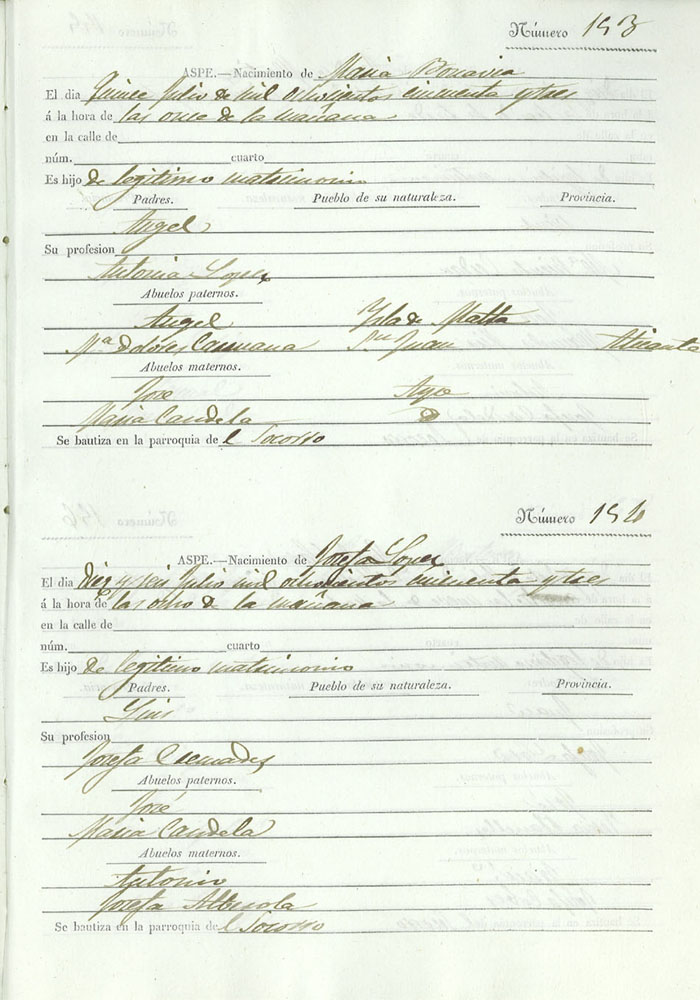 Número 153
ASPE.—Nacimiento de Maria Bonavia
El dia Quince Julio de mil ochocientos cincuenta y tres
á la hora de las once de la mañana
en la calle de
núm. cuarto
Es hijo de legitimo matrimonio
Padres. Pueblo de su naturaleza. Provincia.
Angel
Su profesion
Antonia Lopez
Abuelos paternos.
Angel Isla de Malta
Mª Dolores Caruana Sn Juan Alicante
Abuelos maternos.
José Aspe
Maria Candela
Se bautiza en la parroquia del Socorro
Número
ASPE.—Nacimiento de Josefa Lopez
El dia Diez y seis Julio mil ochocientos cincuenta y tres
á la hora de las ocho de la mañana
en la calle de
núm. cuarto
Es hijo de legitimo matrimonio
Padres. Pueblo de su naturaleza. Provincia.
Luis
Su profesion
Josefa Cremades
Abuelos paternos.
José
Maria Candela
Abuelos maternos.
Antonio
Josefa Alberola
Se bautiza en la parroquia del Socorro